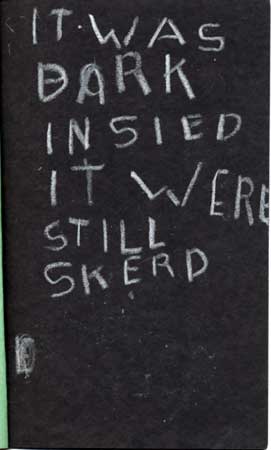 IT WAS
DARK
INSIED
IT WERE
STILL
SKERD